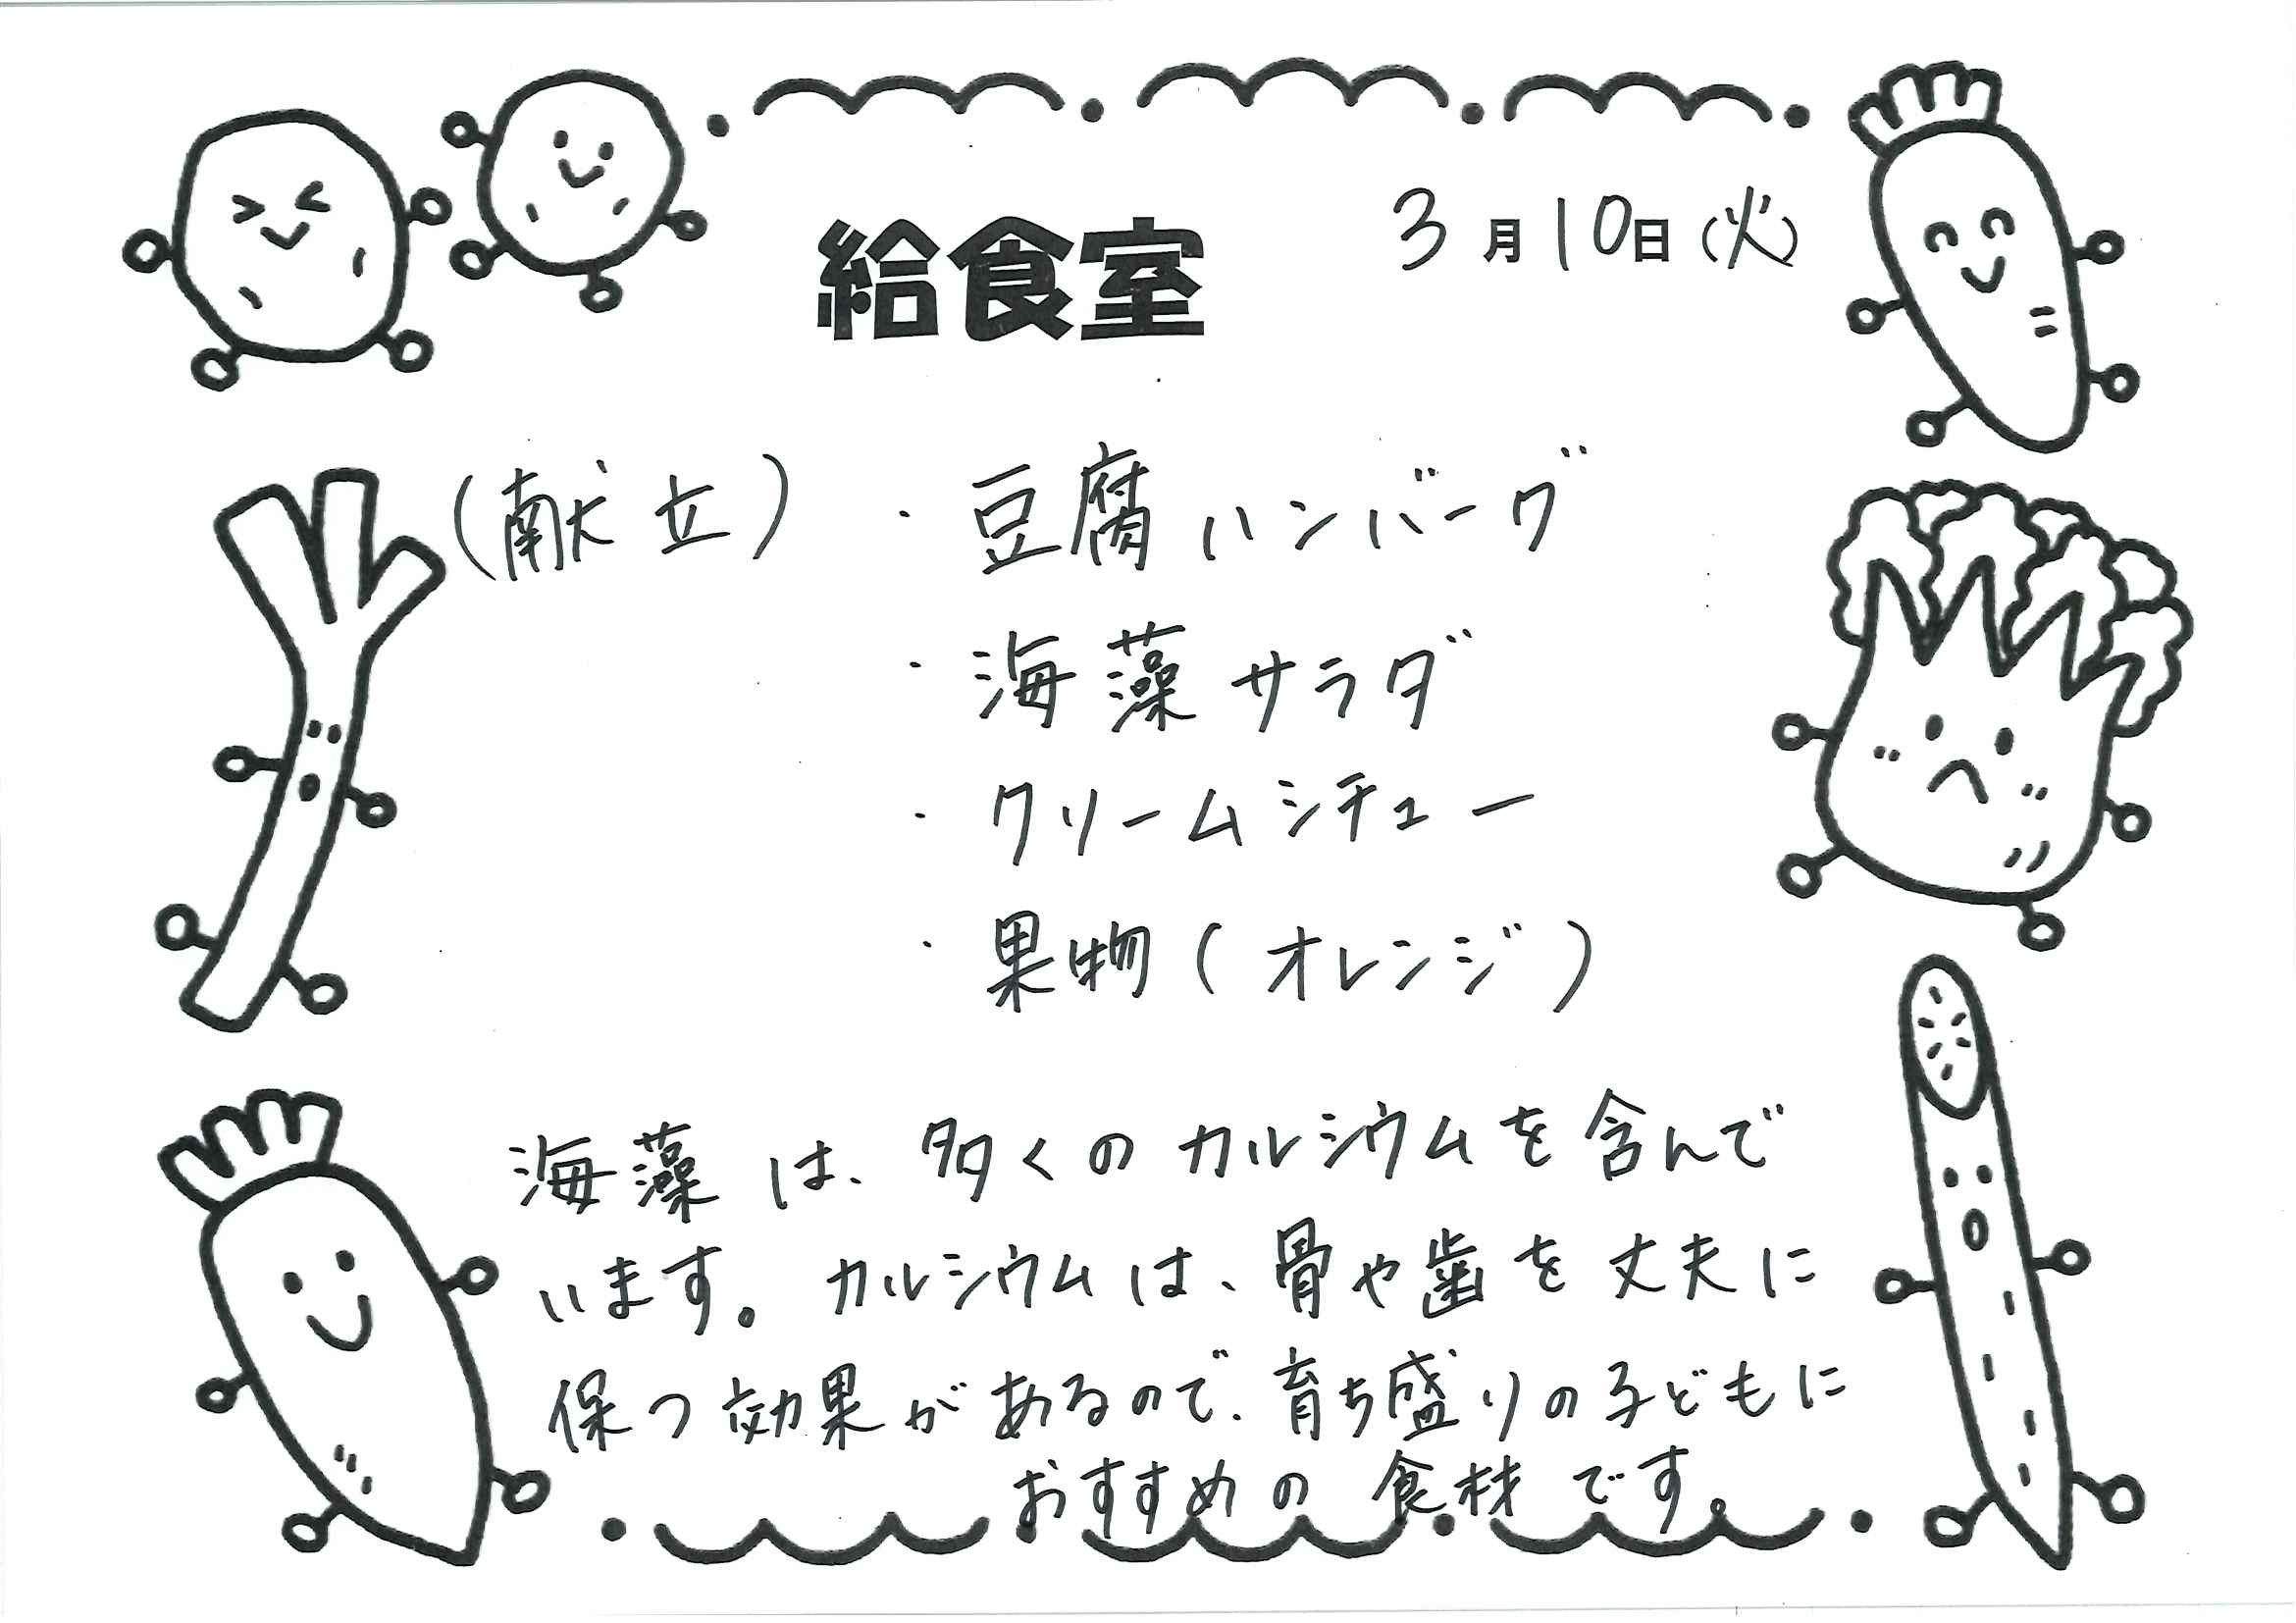 給食室
3月10日(火)
(献立)・豆腐ハンバーグ
・海藻サラダ
・クリームシチュー
・果物(オレンジ)
海藻は、多くのカルシウムを含んで
います。カルシウムは、骨や歯を丈夫に
保つ効果があるので、育ち盛りの子どもに
おすすめの食材です。